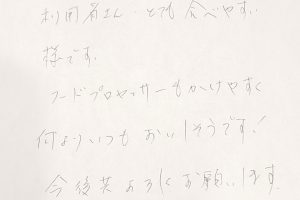 利用者さん、とても食べやすい
様です。
フードプロセッサーもかけやすく
何よりいつもおいしそうです!
今後共よろしくお願いします。